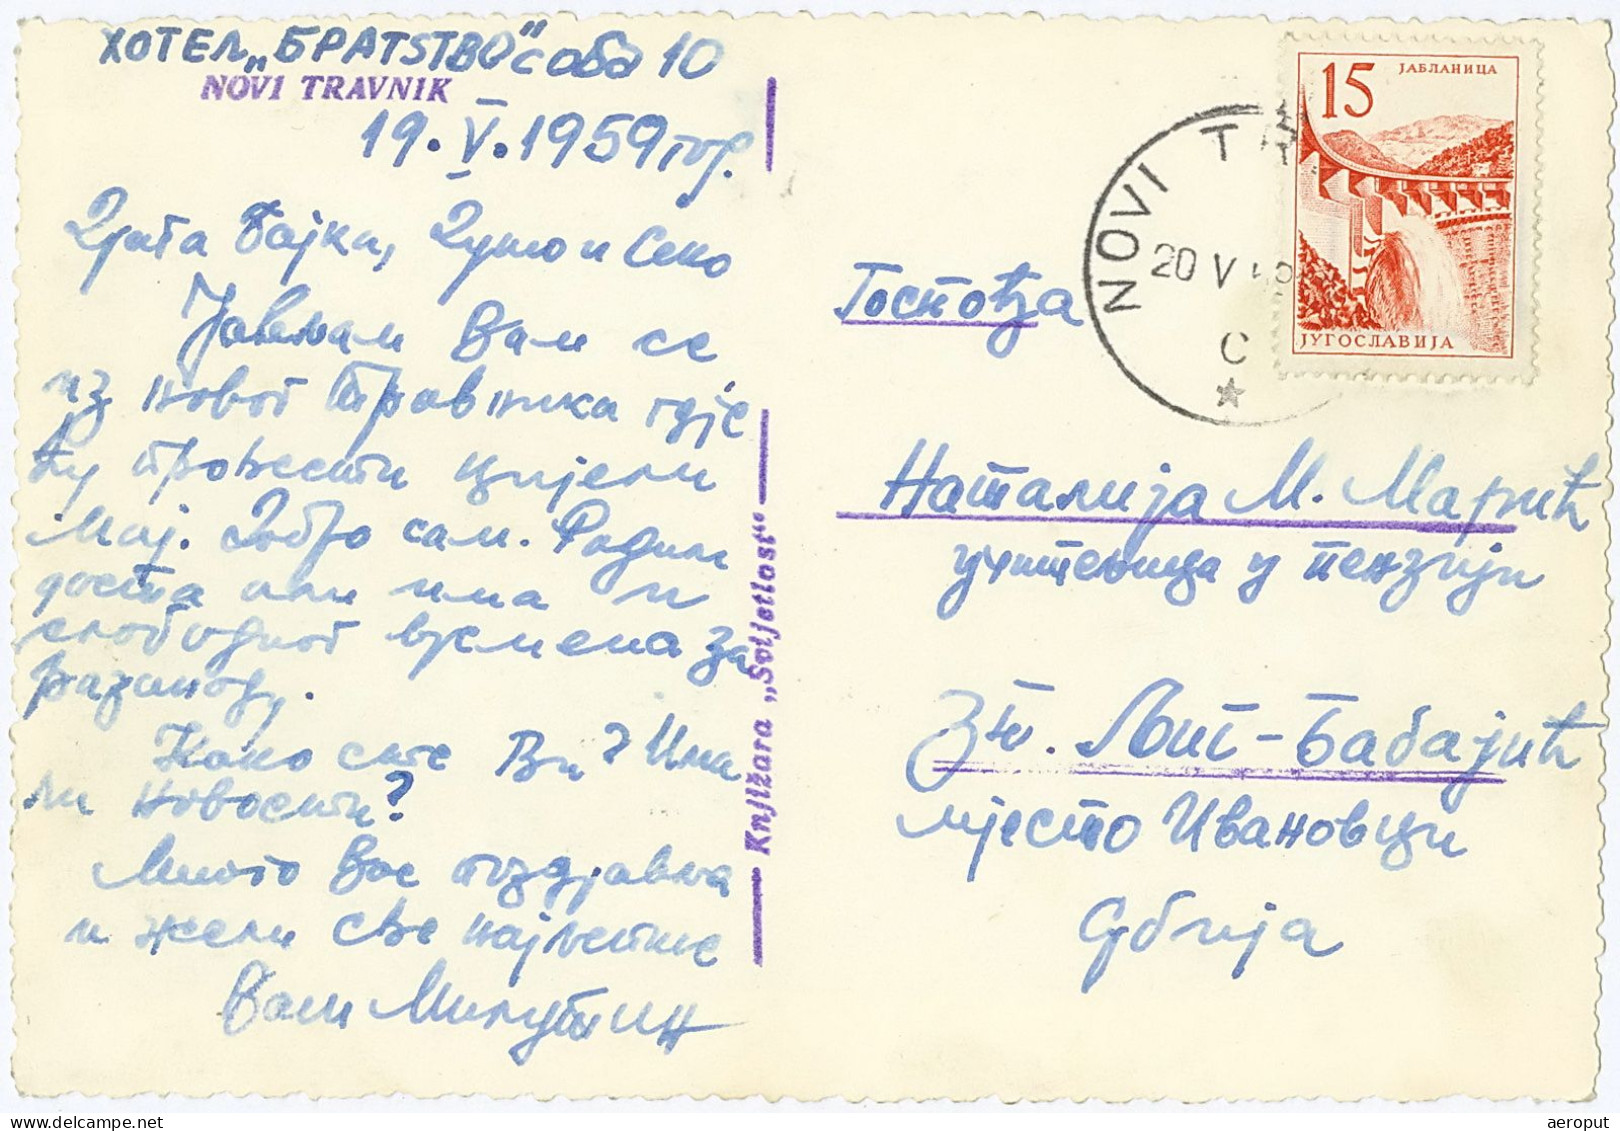 ХОТЕЛ „БРАТSTВО“ соба 10
NOVI TRAVNIK
19.V.1959 год.
Драга Бајка, и Секо
Јављам Вам се
из Новог Травника гдје
ћу провести цијели
мај. Добро сам. Радим
доста али има и
слободног времена за
разоноду.
Како сте Ви? Има
ли новости?
Много Вас поздравља
и жели све најљепше
Ваш Милутин
Knjižara „Svijetlost“
NOVI TR
20 V 59
C
15
ЈАБЛАНИЦА
ЈУГОСЛАВИЈА
Госпођа
Наталија М. Марић
учитељица у пензији
Љиг-Бабајић
мјесто Ивановци
Србија
aeroput